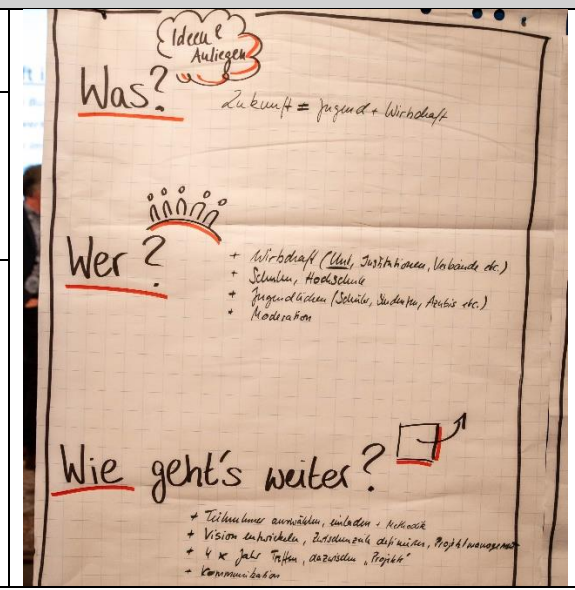 Ideen &
Anliegen
Was?
Zukunft = Jugend + Wirtschaft
Wer?
+ Wirtschaft (Unt., Institutionen, Verbände etc.)
+ Schulen, Hochschule
+ Jugendlichen (Schüler, Studenten, Azubis etc.)
+ Moderation
Wie geht's weiter?
+ Teilnehmer auswählen, einladen + Methodik
+ Vision entwickeln, Zwischenziele definieren, Projektmanagement
+ 4 x Jahr Treffen, dazwischen „Projekte“
+ Kommunikation